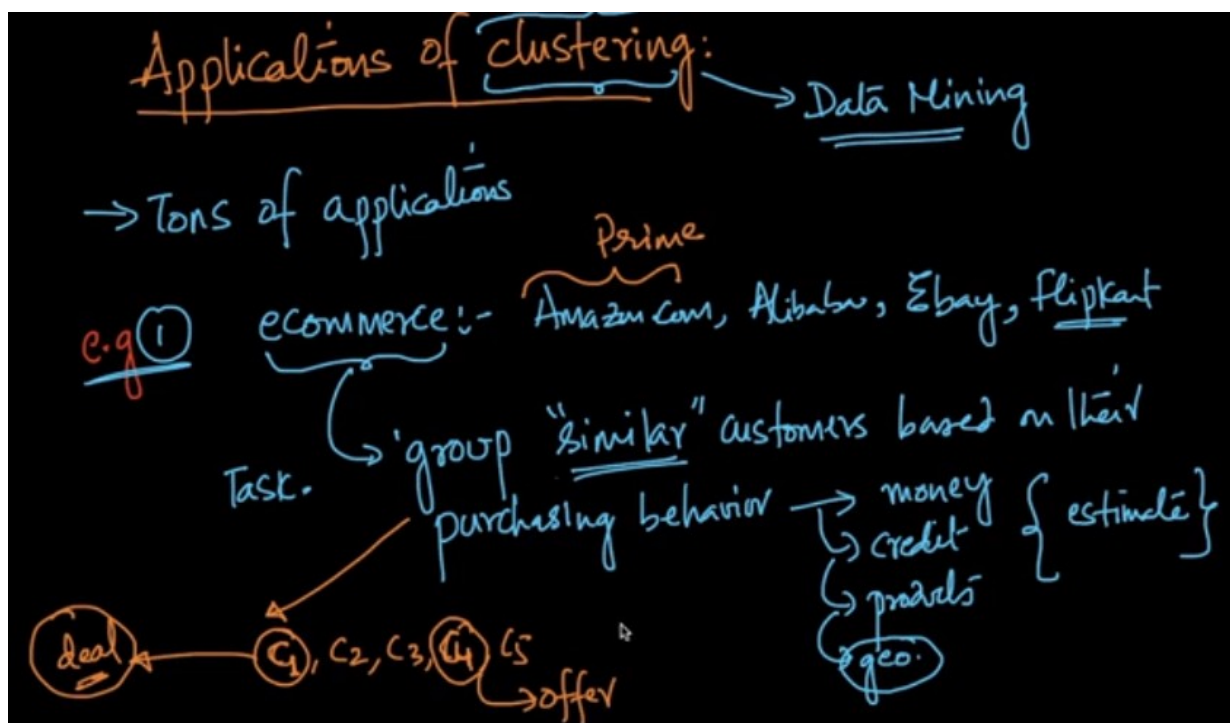 Applications of clustering:
→ Data Mining
→ Tons of applications
Prime
e.g ① ecommerce:- Amazon.com, Alibaba, Ebay, flipkart
Task. group "similar" customers based on their
purchasing behavior → money { estimate }
credit
products
geo.
deal ← C1, C2, C3, C4 C5
→ offer